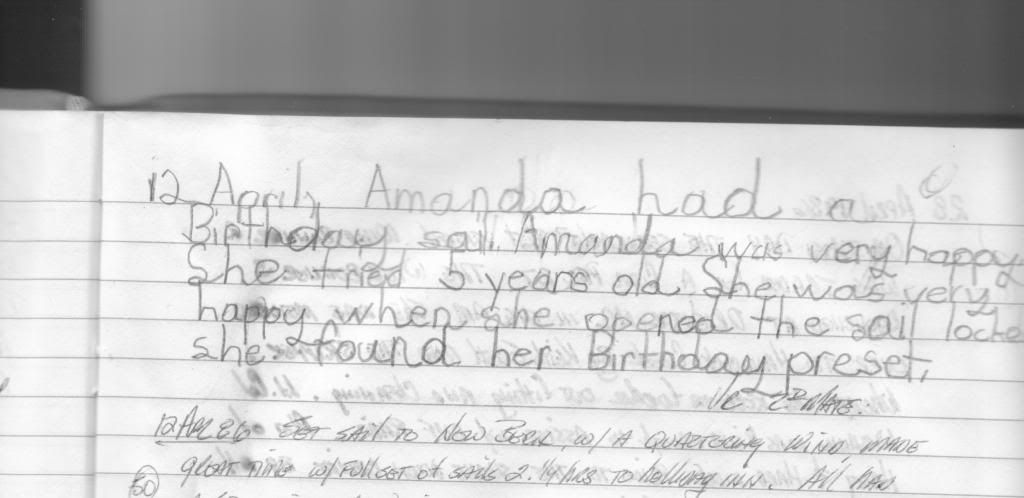 12 April, Amanda had a
Birthday sail. Amanda was very happy
She tried 5 years old She was very
happy when she opened the sail locke
she found her Birthday preset,
2ND MATE.
SET SAIL TO NEW BERN, W/ A QUARTERING WIND, MADE
great time w/ FULL SET of SAILS 2 1/4 hrs TO INN. All HAD
50